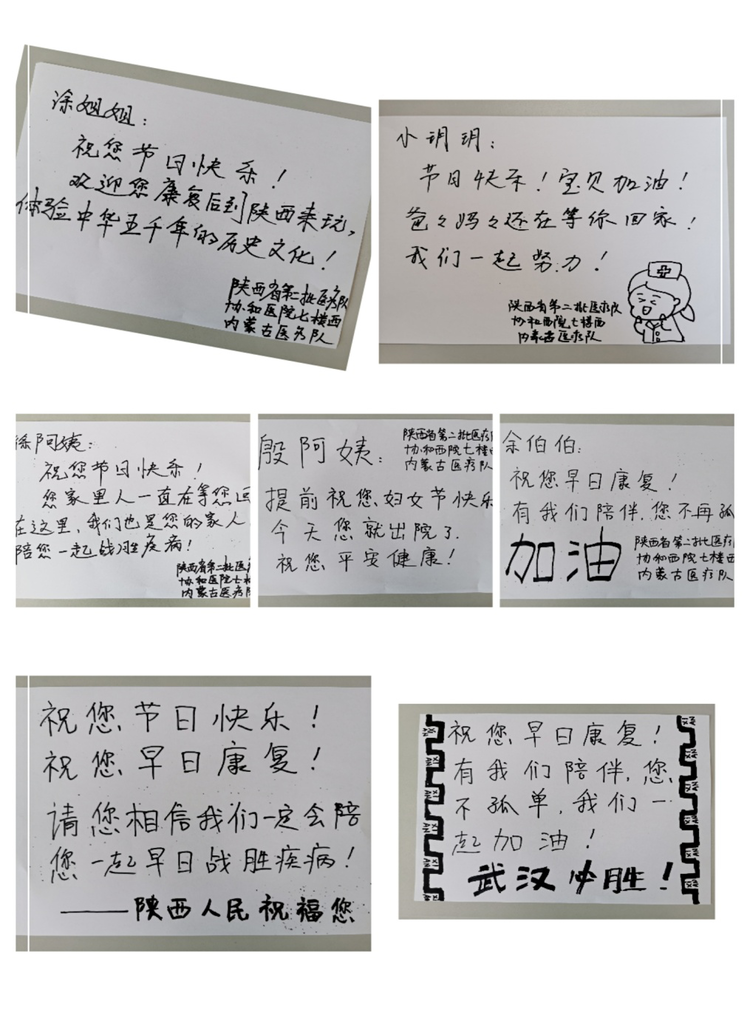 涂姐姐：
祝您节日快乐！
欢迎您康复后到陕西来玩，
体验中华五千年的历史文化！
陕西省第二批医疗队
协和医院七楼西
内蒙古医疗队
小玥玥：
节日快乐！宝贝加油！
爸々妈々还在等你回家！
我们一起努力！
陕西省第二批医疗队
协和西院七楼西
内蒙古医疗队
阿姨：
祝您节日快乐！
您家里人一直在等您回
在这里，我们也是您的家人
陪您一起战胜疫病！
陕西省第二批医
协和医院七楼
内蒙古医疗
殷阿姨：
陕西省第二批医疗
协和西院七楼
内蒙古医疗队
提前祝您妇女节快乐
今天您就出院了
祝您平安健康！
余伯伯：
祝您早日康复！
有我们陪伴，您不再孤
加油
陕西省第二批医疗
协和医院七楼西
内蒙古医疗队
祝您节日快乐！
祝您早日康复！
请您相信我们一定会陪
您一起早日战胜疾病！
——陕西人民祝福您
祝您早日康复！
有我们陪伴，您
不孤单，我们一
起加油！
武汉必胜！